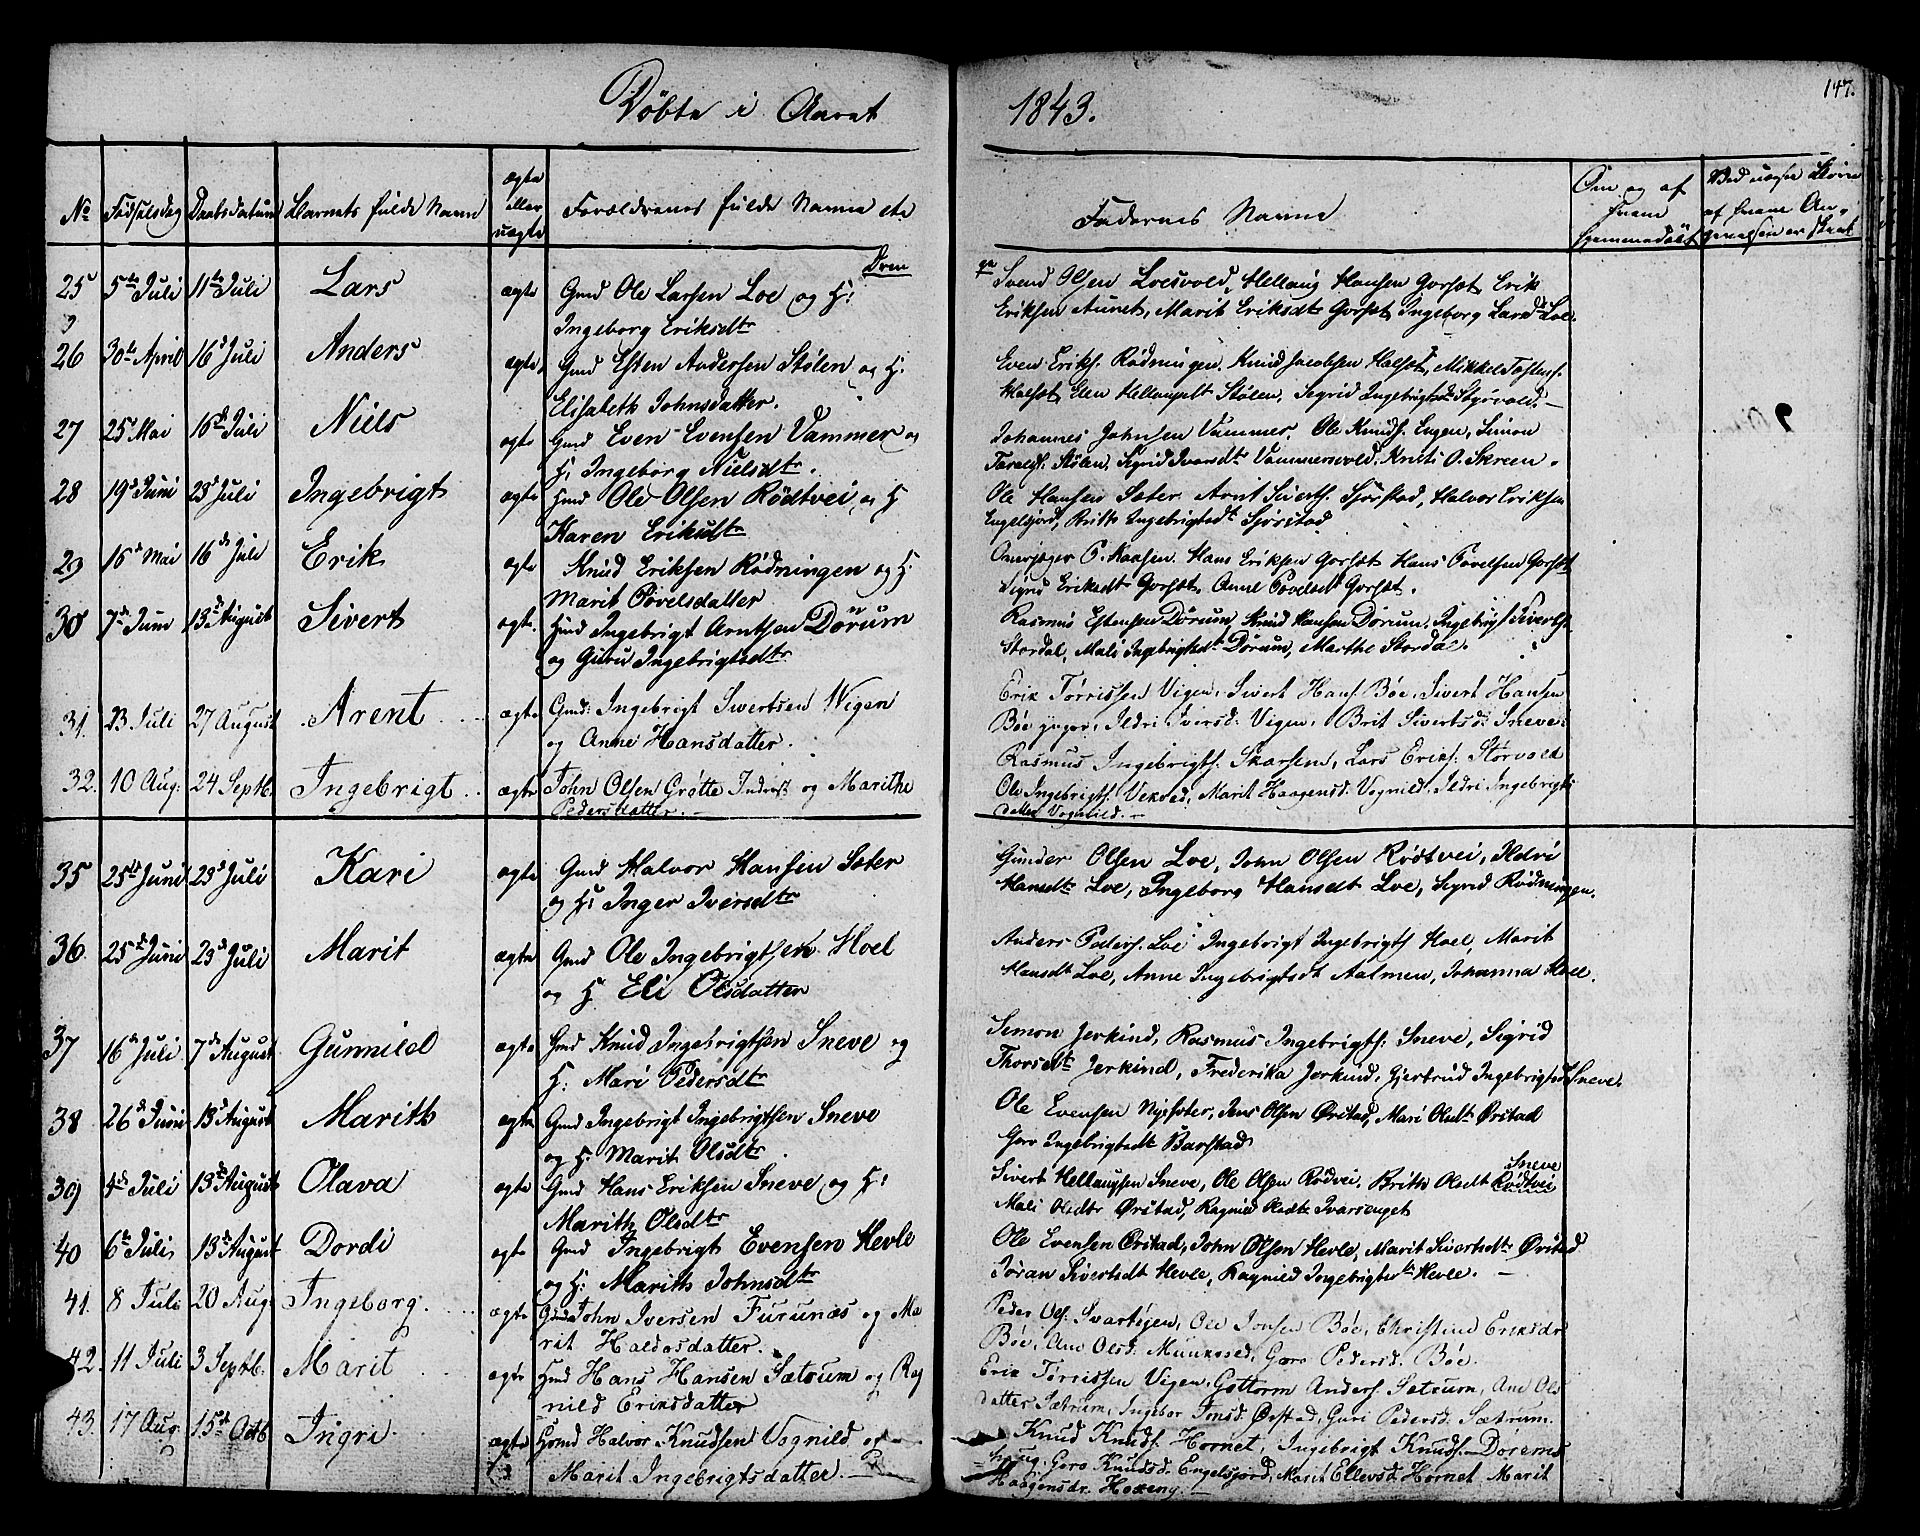 Døbte i Aaret
1843.
147.
No
Fødselsdag
Daabsdatum
Barnets fulde Navn
ægte
eller
uægte
Forældrenes fulde Navne etc
Faddernes Navne
Om og af
hvem
hjemmedøbt
Oren
25 5te Juli 11te Juli Lars ægte Gmd Ole Larsen Loe og H:
Ingeborg Eriksdtr
Svend Olsen Loesvold, Hellaug Hansen Gorset, Erik
Eriksen Aunet, Marit Eriksdt Gorset, Ingeborg Larsdt Loe.
26 30te April 16d Juli Anders ægte Gmd Esten Andersen Stølen og H.
Elisabeth Johnsdatter.
Even Eriks. Rødningen, Knud Jacobsen Halset, Mikkel
Halset, Elen Stølen, Sigrid Ingebrigtsdt
27 25d Mai 16de Juli Niels ægte Gmd Even Evensen Vammer og
H, Ingeborg Nielsdtr.
Johannes Johnsen Vammer, Ole Knuds. Engen, Simon
Stølen, Sigrid Ivarsdt Vammersvold, O. Skreen.
28 19d Juni 23d Juli Ingebrigt ægte Hmd Ole Olsen Rödtvei, og H
Karen Eriksdtr
Ole Hansen Sæter, Arnt Siverts. Sjørstad, Halvor Eriksen
Engelsjord, Brith Ingebrigtsdt Sjørstad
29 16d Mai 16de Juli Erik ægte Knud Eriksen Rødningen og H:
Marit Povelsdatter
P. Kaasen, Hans Eriksen Gorset, Hans Povelsen Gorset
Sigrid Eriksdt Gorset, Anne Povelsdt Gorset.
30 7de Juni 13de August Sivert ægte. Hmd Ingebrigt Arntsen Dörum
og Guru Ingebrigtsdtr
Rasmus Estensen Dörum, Knud Hansen Dörum, Ingebrigt Siverts.
Stordal, Mali Ingebrigtsdt Dörum, Marthe Stordal.
31. 23 Juli 27 August Arent ægte Gmd: Ingebrigt Sivertsen Vigen
og Anne Hansdatter.
Erik Tørrissen Vigen, Sivert Hans. Bøe, Sivert Hansen
Bøe yngr, Ildri Iversd: Vigen, Brit Sivertsd: Sneve.
32. 10 Aug: 24 Septb. Ingebrigt ægte John Olsen Grøtte Inderst og Marithe
Pedersdatter. —
Rasmus Ingebrigts. Skarsem, Lars Eriks: Storvold
Ole Ingebrigts. Marit Haagensd: Vognild, Ildri Ingebrigts
datter Vognild. —
35 25de Juni 23d Juli Kari ægte Gmd Halvor Hansen Sæter
og H: Inger Iversdtr
Gunder Olsen Loe, John Olsen Rödtvei, Ildri
Hansdtr Loe, Ingeborg Hansdt Loe, Sigrid Rødningen.
36. 25de Juni 23d Juli Marit ægte Gmd Ole Ingebrigtsen Hoel
og H. Eli Olsdatter
Anders Peders. Loe, Ingebrigt Ingebrigts Hoel, Marit
Hansdt Loe, Anne Ingebrigtsdt Aalmen, Johanna Hoel.
37 16de Juli 7de August Gunnild ægte Hmd Knud Ingebrigtsen Sneve og
H: Mari Pedersdtr
Simon Jerkind, Rasmus Ingebrigts: Sneve, Sigrid
Thorsdtr Jerkind, Frederika Jerkind, Gjertrud Ingebrigtsdt Sneve.
38 26d Juni 13d August Marith ægte Gmd Ingebrigt Ingebrigtsen Sneve
og H: Marit Olsdtr
Ole Evensen Nysæter, Jens Olsen Ørstad, Mari Olsdtr Ørstad
Goro Ingebrigtsdt Barstad
39 4de Juli 13de August Olava ægte Gmd Hans Eriksen Sneve og H:
Marith Olsdtr
Sneve
Sivert Hellaugsen Sneve, Ole Olsen Rødvei, Brith Olsdt Rødtvei
Mali Olsdtr Ørstad, Ragnild Olsdtr Ivarsenget
40 6te Juli, 13de August Dordi ægte Gmd Ingebrigt Evensen Hevle
og H: Marith Johnsdtr
Ole Evensen Ørstad, John Olsen Hevle, Marit Sivertsdtr Ørstad
Jøran Sivertsdt Hevle, Ragnild Ingebrigtsdt Hevle. —
41. 8 Juli 20 Aug: Ingeborg. ægte Gmd John Iversen Furunæs og Ma
rit Haldosdatter.
Peder Ols: Svartøjen, Ole Jonsen Bøe, Christine Eriksdr
Bøe, Ane Olsd: Goro Pedersd. Bøe.
42. 11 Juli 3 Septb. Marit ægte Hmd Hans Hansen Sætrum og Rag
nild Eriksdatter
Erik Tørrissen Vigen, Guttorm Anders. Sætrum, Ane Ols
datter Sætrum, Ingebor Jonsd. Ørstad, Guri Pedersd. Sætrum.
43. 17 Aug 15de Octb Ingri ægte Hmd Halvor Knudsen Vognild og
Marit Ingebrigtsdatter. —
Knud Knuds. Hornet, Ingebrigt Knuds. Dörems
Goro Knudsd. Engelsjord, Marit Ellevsd Hornet, Marit
Haagensdr.